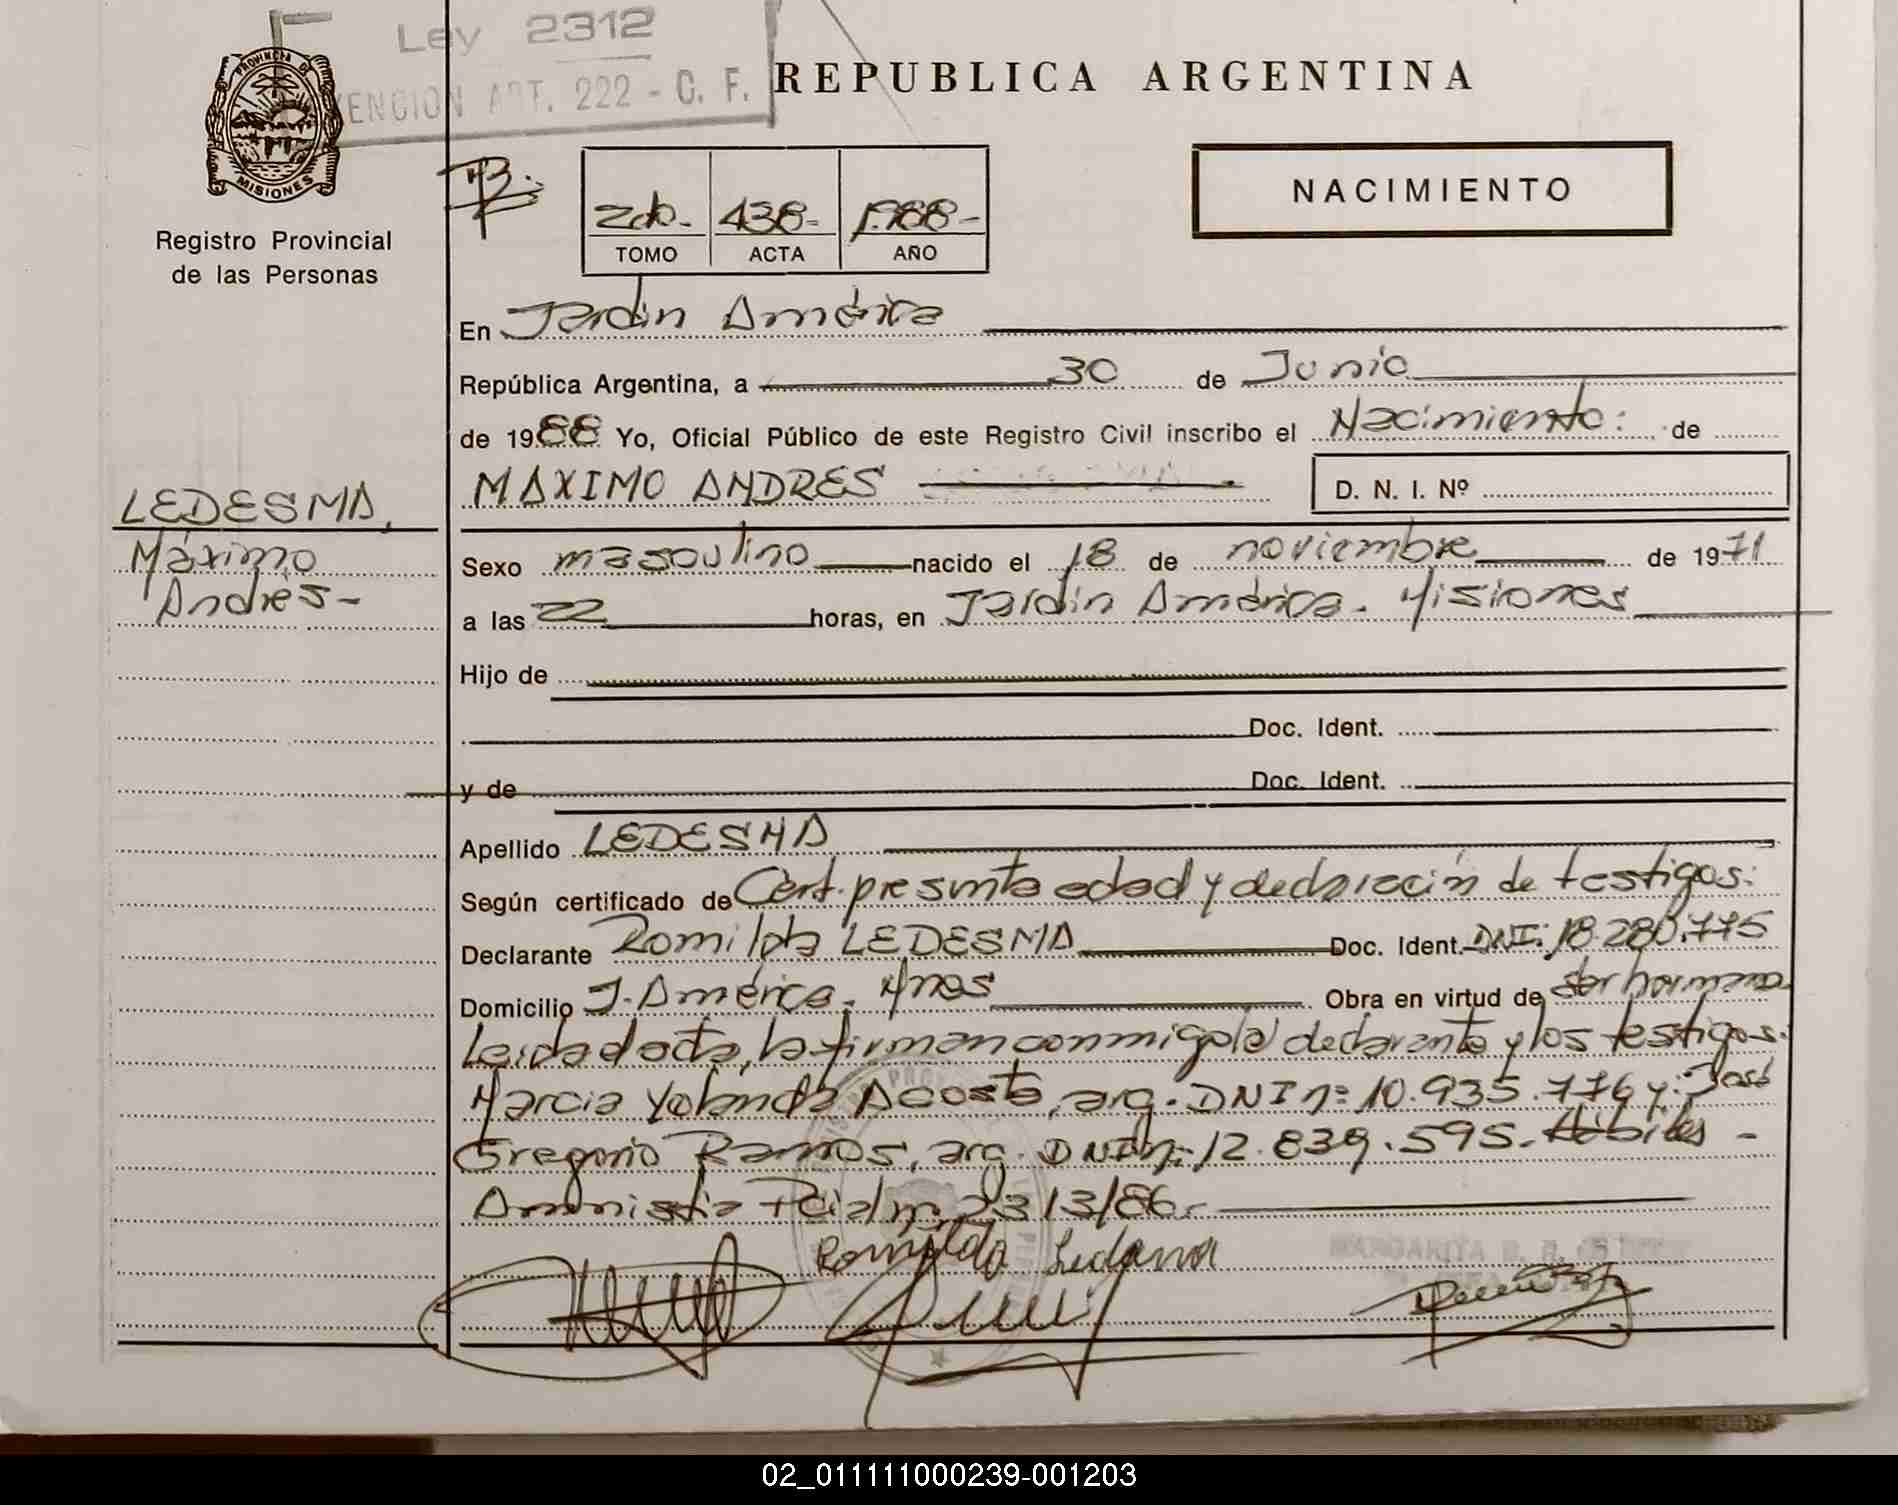 Ley 2312
ART. 222 - C. F.
PROVINCIA DE
MISIONES
Registro Provincial
de las Personas
REPUBLICA ARGENTINA
NACIMIENTO
2do.- 438- 1.988-
TOMO ACTA AÑO
En Jardín América
República Argentina, a 30 de Junio
de 1988 Yo, Oficial Público de este Registro Civil inscribo el Nacimiento: de
MAXIMO ANDRES D. N. I. Nº
LEDESMA,
Máximo
Andrés-
Sexo masculino nacido el 18 de noviembre de 1971
a las 22 horas, en Jardín América. Misiones
Hijo de
Doc. Ident.
y de Doc. Ident.
Apellido LEDESMA
Según certificado de Cert. presunta edad y declaración de testigos:
Declarante Romilda LEDESMA Doc. Ident. DNI: 18.280.775
Domicilio J. América. Mnes Obra en virtud de ser hermana
Leída el acta, la firman conmigo la declarante y los testigos:
Marcia Yolanda Acosta, arg. DNI nº 10.935.776 y: José
Gregorio Ramos, arg. DNI nº 12.839.595. Hábiles -
Amnistía Pcial nº 2313/86.-
Romilda Ledesma
MARGARITA
02_011111000239-001203